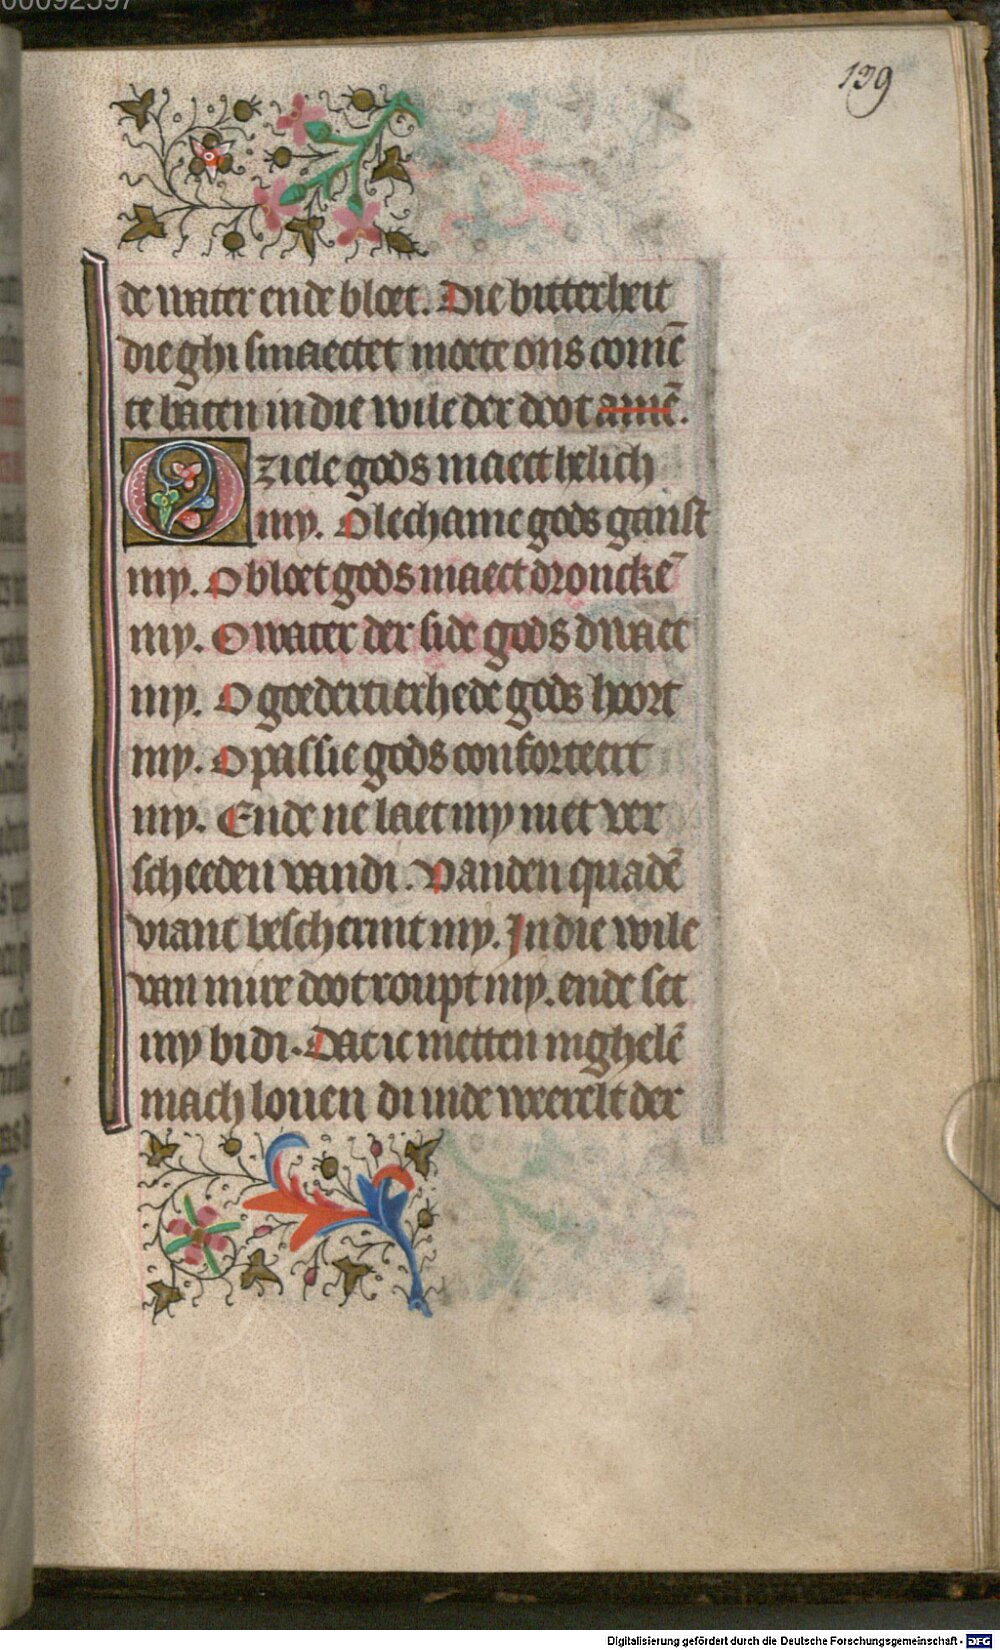 00092597
139
de water ende bloet. Die bitterheit
die ghi smaectet moete ons comē
te baten in die wile der doot amē.
O ziele gods maect helich
my. O lechame gods ganst
my. O bloet gods maect dronckē
my. O water der side gods dwaet
my. O goedertierhede gods hoort
my. O passie gods conforteert
my. Ende ne laet my niet ver
scheeden van di. Vanden quadē
viant beschermt my. In die wile
van mire doot roupt my. ende set
my bi di. Dat ic metten inghelē
mach louen di inde weerelt der
Digitalisierung gefördert durch die Deutsche Forschungsgemeinschaft - DFG